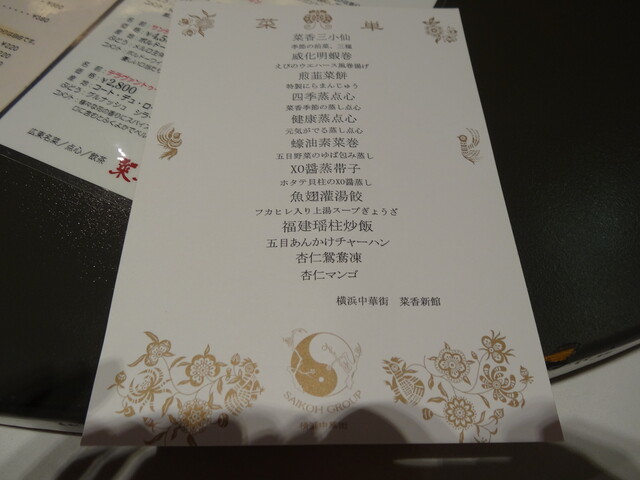 菜 単
菜香三小仙
季節の前菜、三種
威化明蝦巻
えびのウエハース風巻揚げ
煎韮菜餅
特製にらまんじゅう
四季蒸点心
菜香季節の蒸し点心
健康蒸点心
元気がでる蒸し点心
蠔油素菜巻
五目野菜のゆば包み蒸し
XO醤蒸帯子
ホタテ貝柱のXO醤蒸し
魚翅灌湯餃
フカヒレ入り上湯スープぎょうざ
福建瑶柱炒飯
五目あんかけチャーハン
杏仁鴛鴦凍
杏仁マンゴ
横浜中華街 菜香新館
SAIKOH GROUP
横浜中華街
¥2,800
広東名菜/点心/飲茶